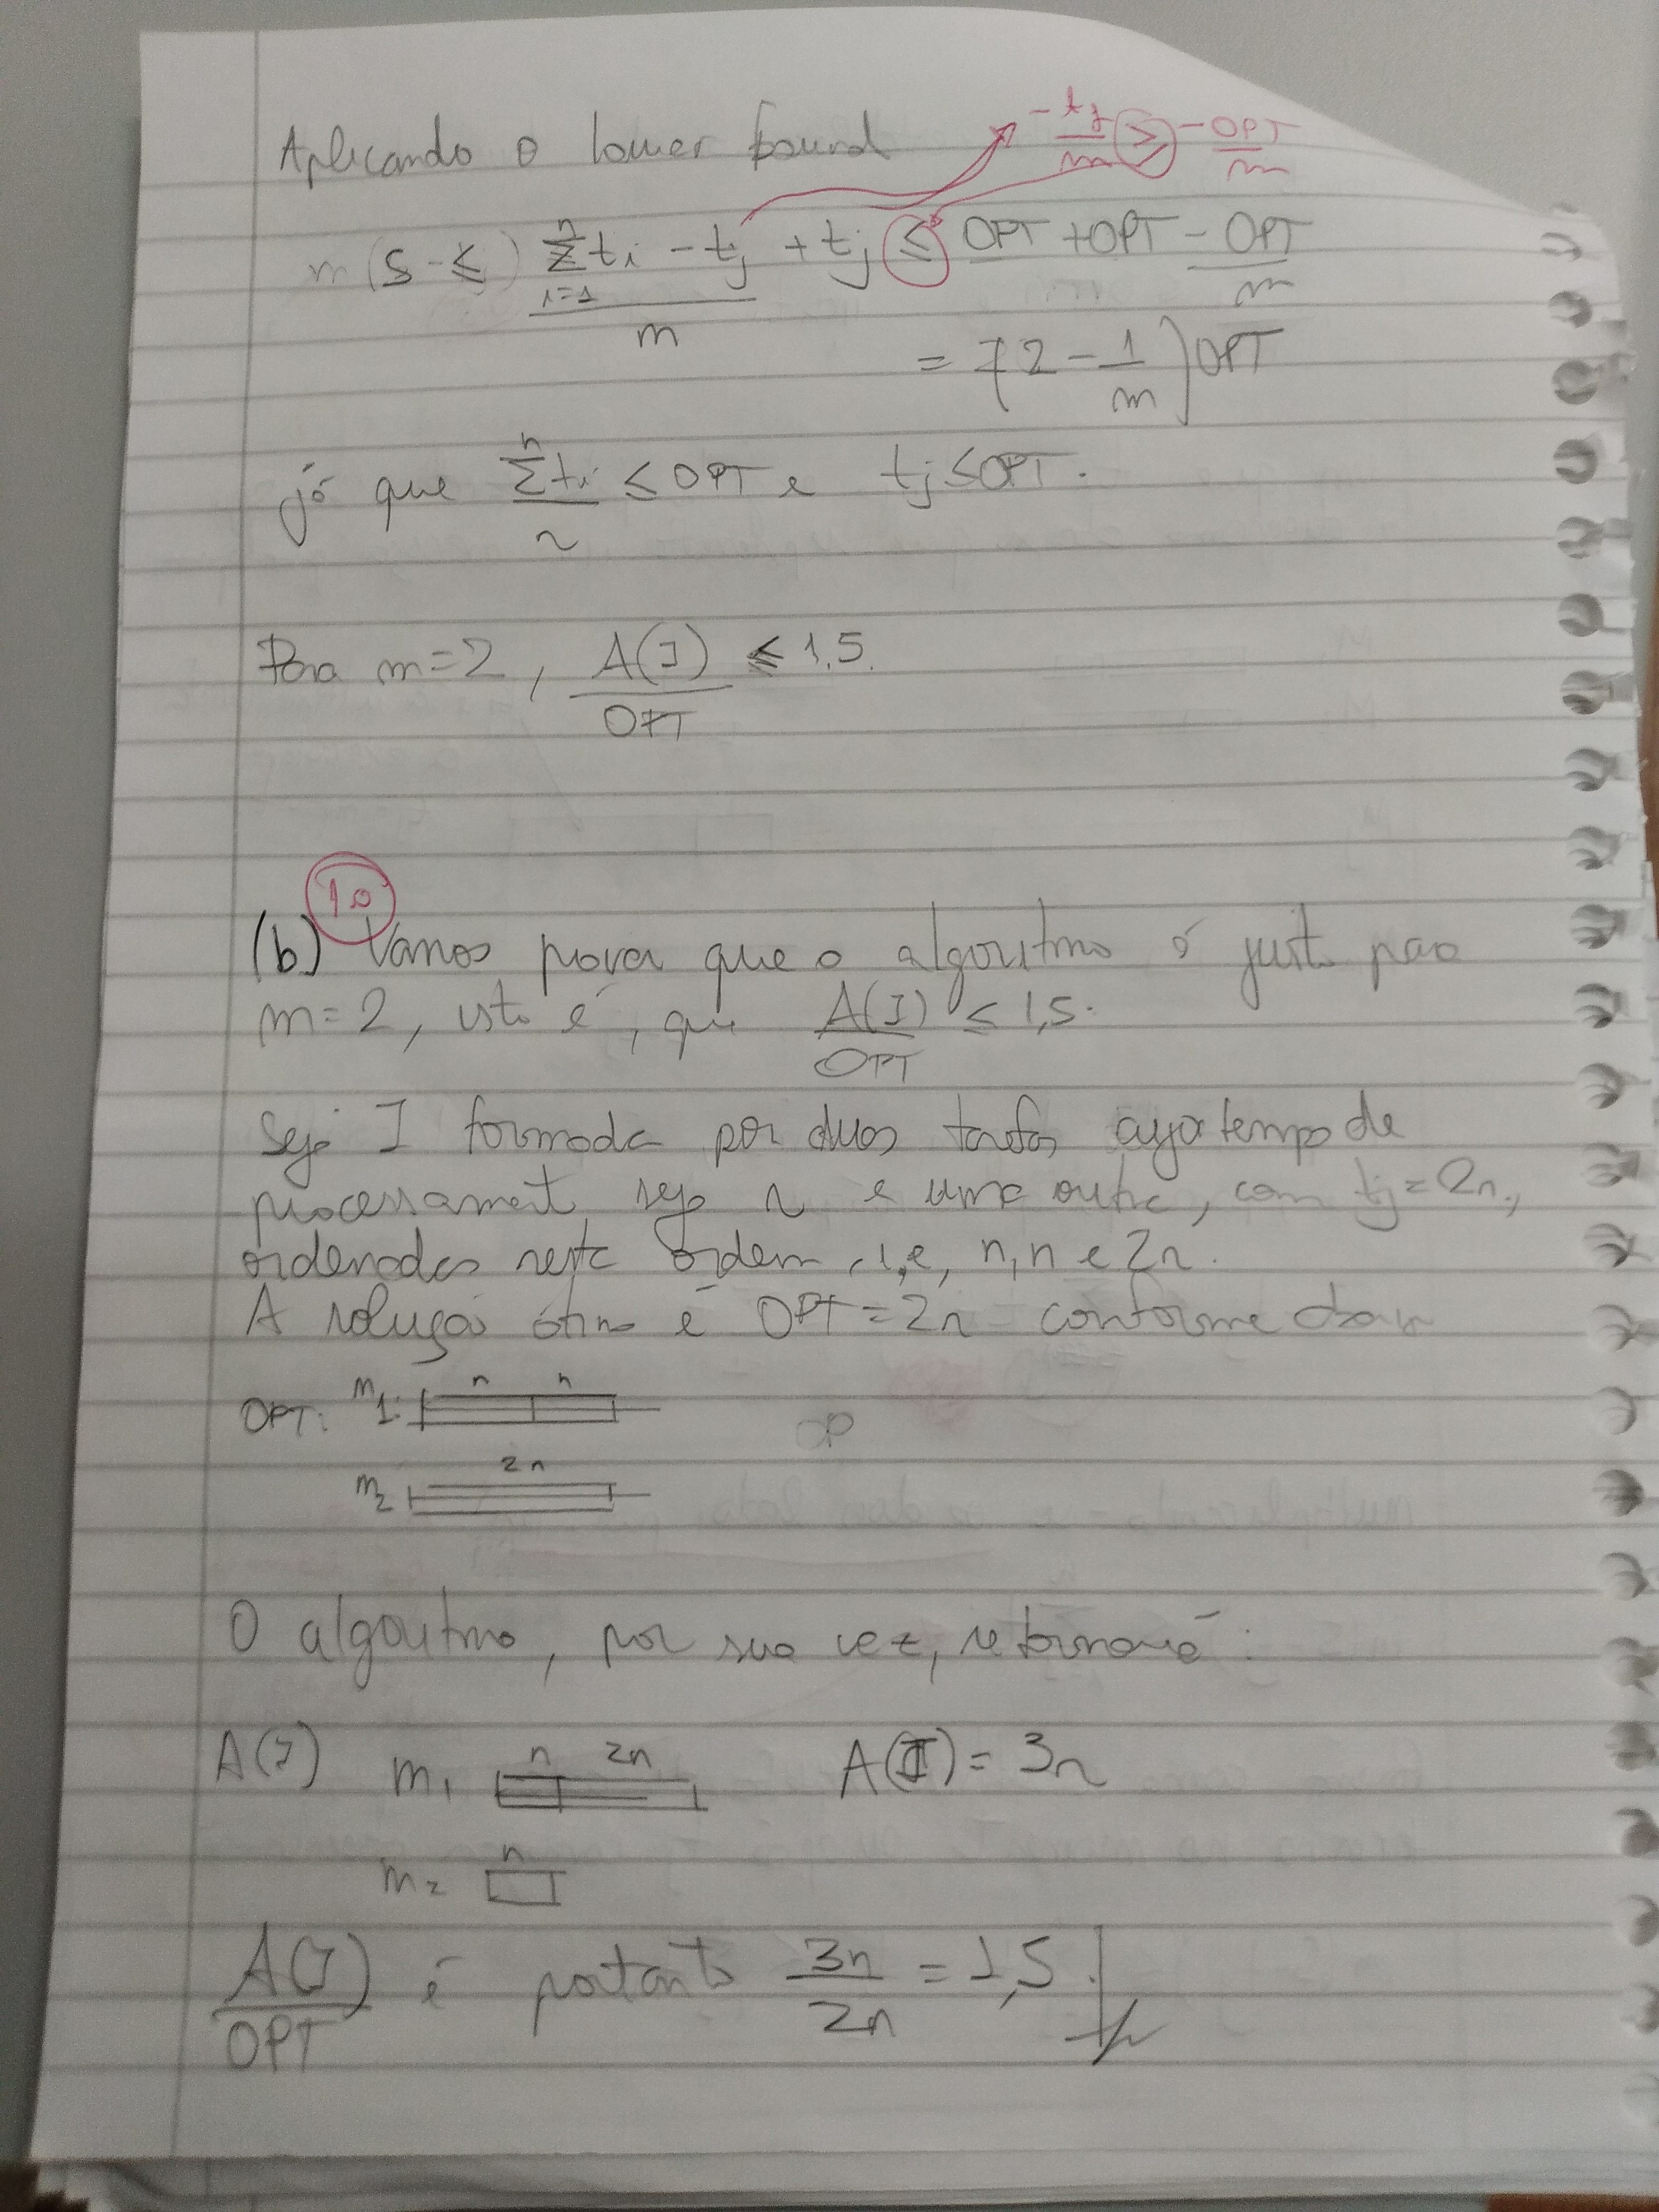 Aplicando o lower bound
-tj/m ≥ -OPT/m
m(S ≤) (∑_{i=1}^{n} ti - tj)/m + tj ≤ OPT + OPT - OPT/m
= (2 - 1/m) OPT
já que ∑^{n} ti/n ≤ OPT e tj ≤ OPT.
Para m=2, A(I)/OPT ≤ 1.5.
1.0
(b) Vamos provar que o algoritmo é justo para
m=2, isto é, que A(I)/OPT ≤ 1,5.
Seja I formada por duas tarefas cujo tempo de
processamento seja n e uma outra, com tj = 2n,
ordenadas nesta ordem, i,e, n, n e 2n.
A solução ótima é OPT = 2n conforme
OPT: m1: n n
OP
m2 2n
O algoritmo, por sua vez, retornará:
A(I) m1 n 2n A(I) = 3n
m2 n
A(I)/OPT é portanto 3n/2n = 1,5.